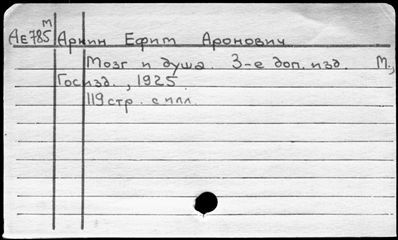 м
Ае785 Аркин Ефим Аронович
Мозг и душа. 3-е доп. изд. М.,
Госизд., 1925.
119 стр. с илл.